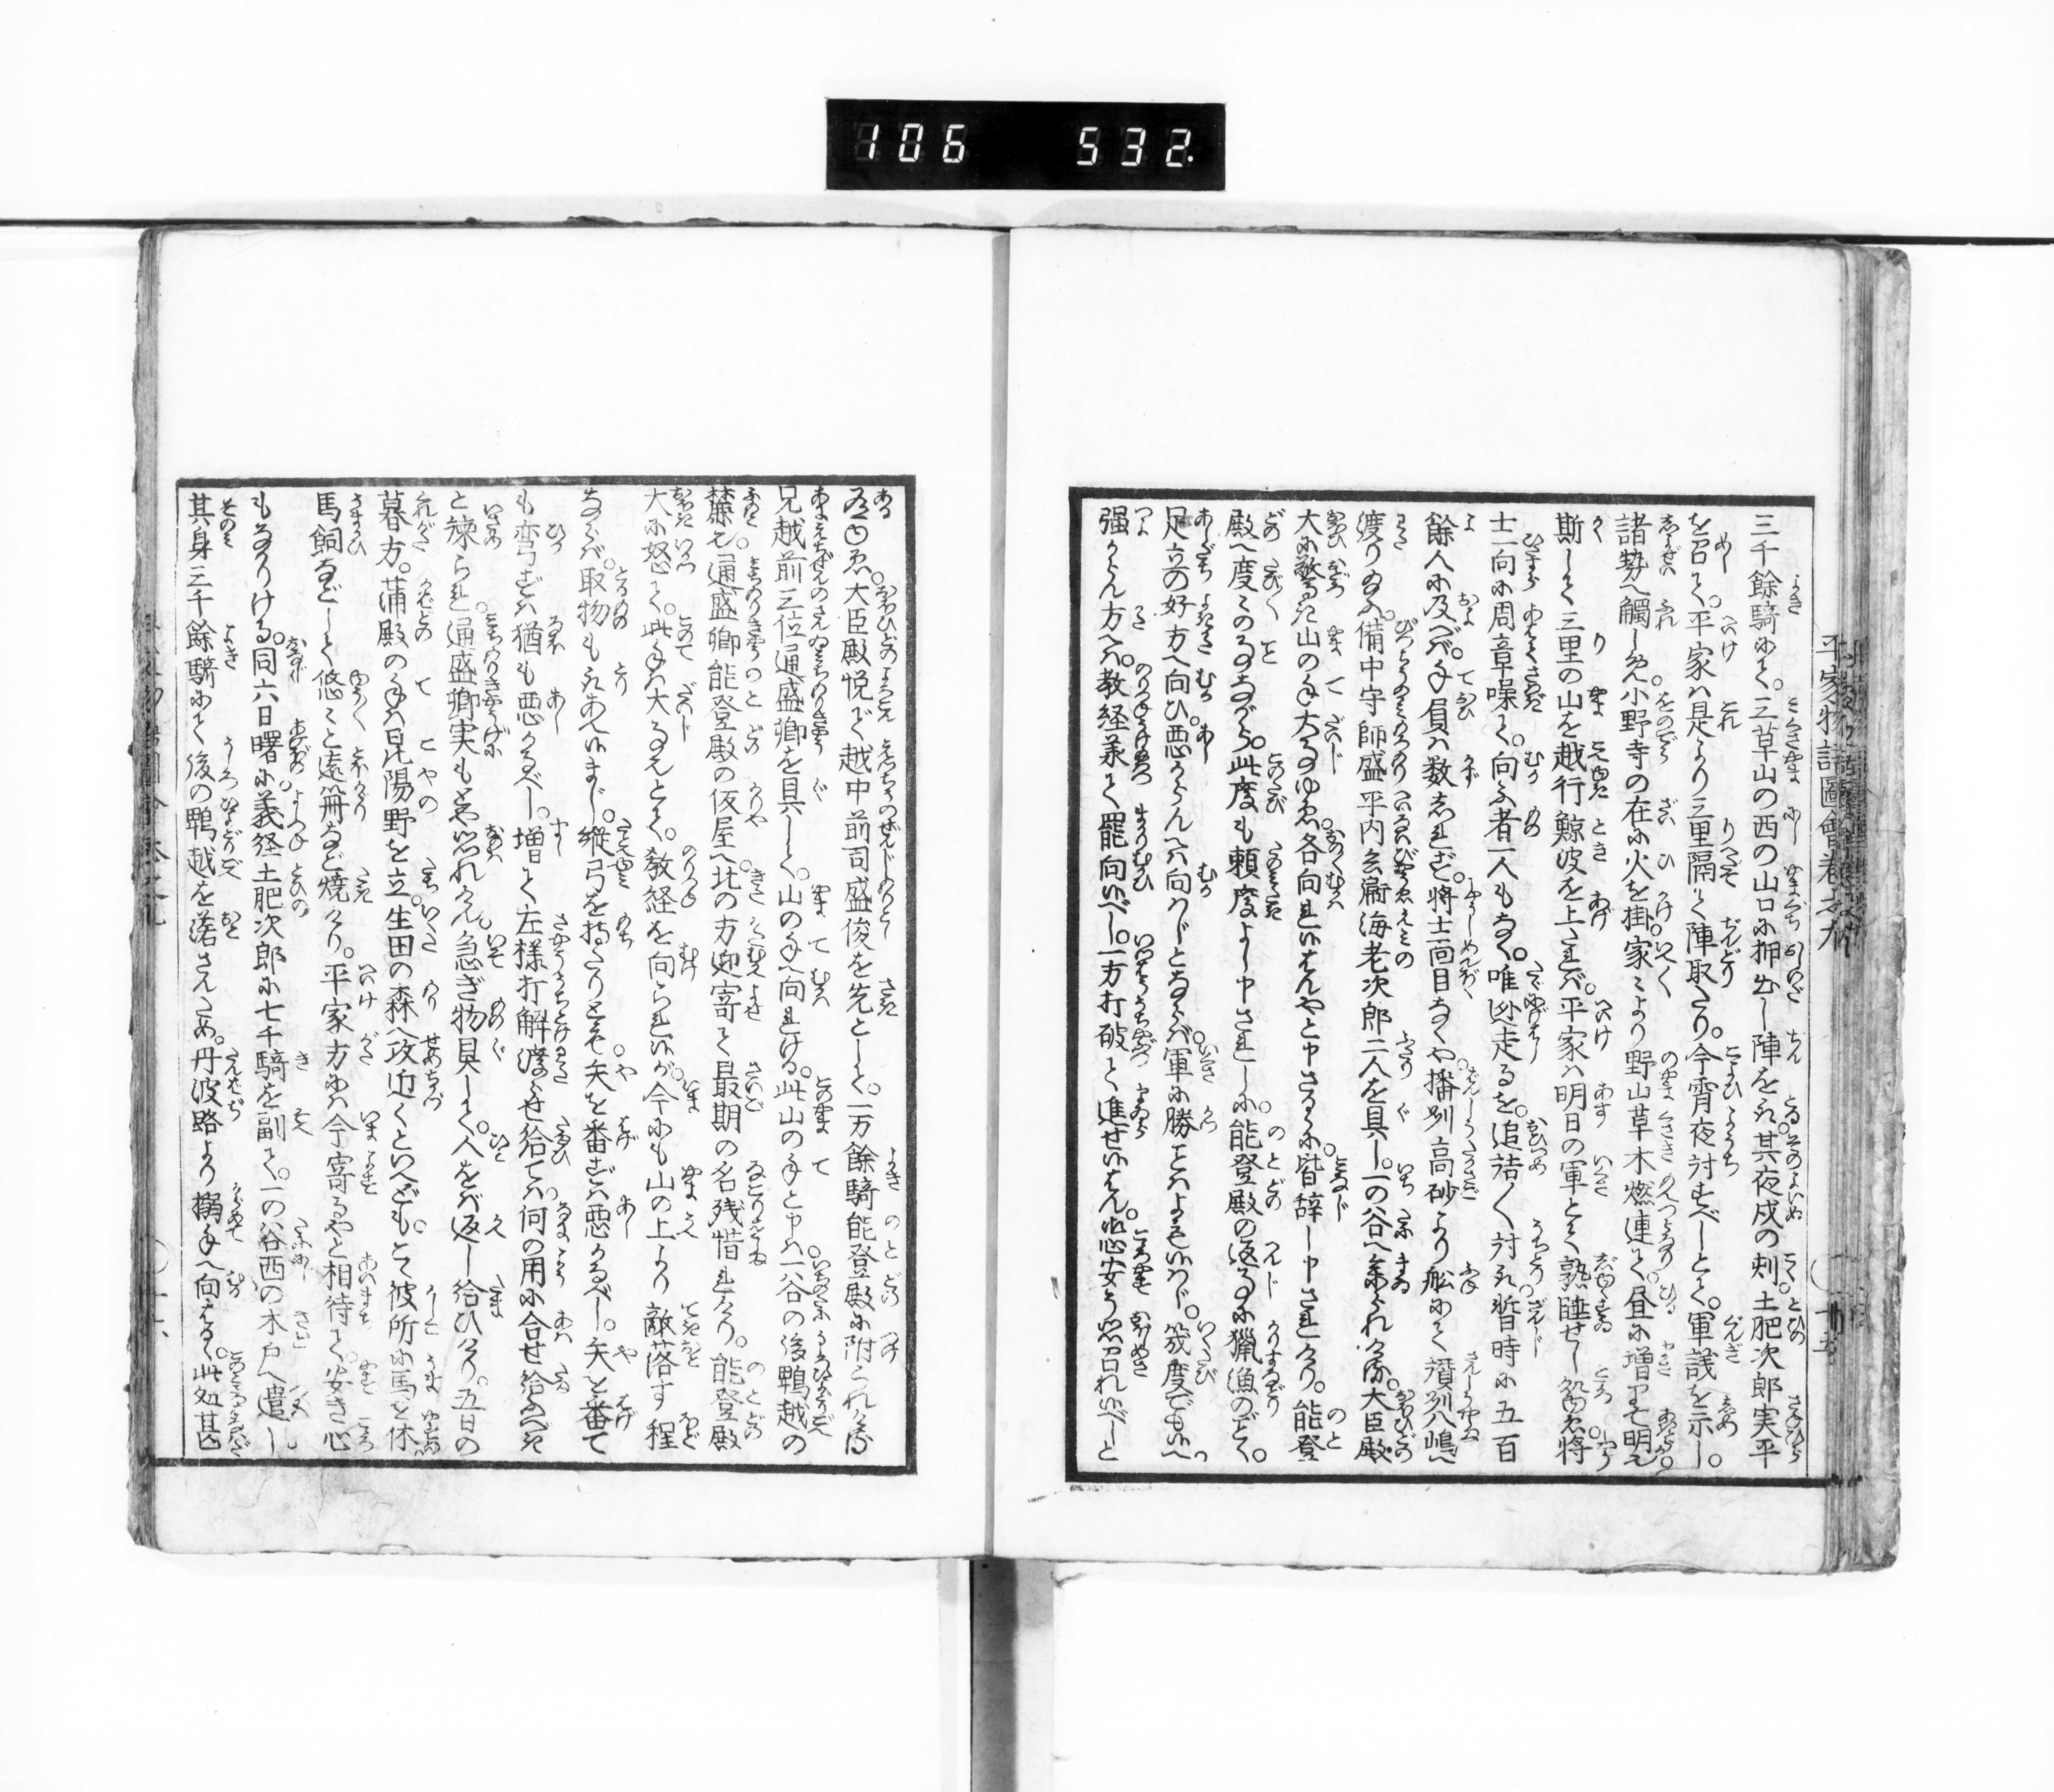 106 532
平家物語圖會巻之九
三千餘騎にて。三草山の西の山口に押出し陣をとる。其夜戌の刻。土肥次郎実平
を召て。平家は是より三里隔て陣取たり。今宵夜討すべしとて。軍議を示し。
諸勢へ觸しめ。小野寺の在に火を掛。家々より野山草木燃連て。昼に増まで明く。
斯して三里の山を越行鯨波を上ければ。平家は明日の軍とて熟睡せし処ゆゑ将
士一向に周章噪て。向ふ者一人もなく。唯迯走るを。追詰〱討れ暫時に五百
餘人に及べば。手負は数しれず。将士面目なくや。播州高砂より舩にて讃州八嶋へ
渡り給ふ。備中守師盛平内兵衞海老次郎二人を具し。一の谷へ参られければ。大臣殿
大に驚き山の手大事ゆゑ。各向れ候はんやと申さるゝに。皆辞し申されけり。能登
殿へ度々の事ながら。此度も頼度よし申されしに。能登殿の返事に獵漁のごとく。
足立の好方へ向ひ。悪からん方へは向はじとならば。軍に勝ことはよも候はじ。幾度でも候へ
强からん方へは。教経承て罷向候べし。一方打破て進せ候はん。御心安う思召れ候べしと
有ゆゑ。大臣殿悦で越中前司盛俊を先として。一万餘騎能登殿に附られける。
兄越前三位通盛卿を具して。山の手へ向れける。此山の手と申は一谷の後鴨越の
麓也。通盛卿能登殿の仮屋へ北の方迎寄て最期の名残惜れけり。能登殿
大に怒て。此手は大事とて。教経を向られ候が。今にも山の上より敵落す程
ならば。取物もとりあへ候まじ。縱弓を持たりとも矢を番ずは悪かるべし。矢を番て
も弯ずは猶も悪かるべし。増て左様打解渡らせ給ては何の用に合せ給ふべき
と諫られ。通盛卿実もとや思はれけん。急ぎ物具して。人をば返し給ひけり。五日の
暮方。蒲殿の手は昆陽野を立。生田の森へ攻近くといへども。とて彼所に馬を休
馬飼などして悠々と遠篝など焼けり。平家方には今寄るやと相待て。安き心
もなりける。同六日曙に。義経土肥次郎に七千騎を副て。一の谷西の木戸へ遣し
其身三千餘騎にて後の鴨越を落さんため。丹波路より搦手へ向はる。此処甚